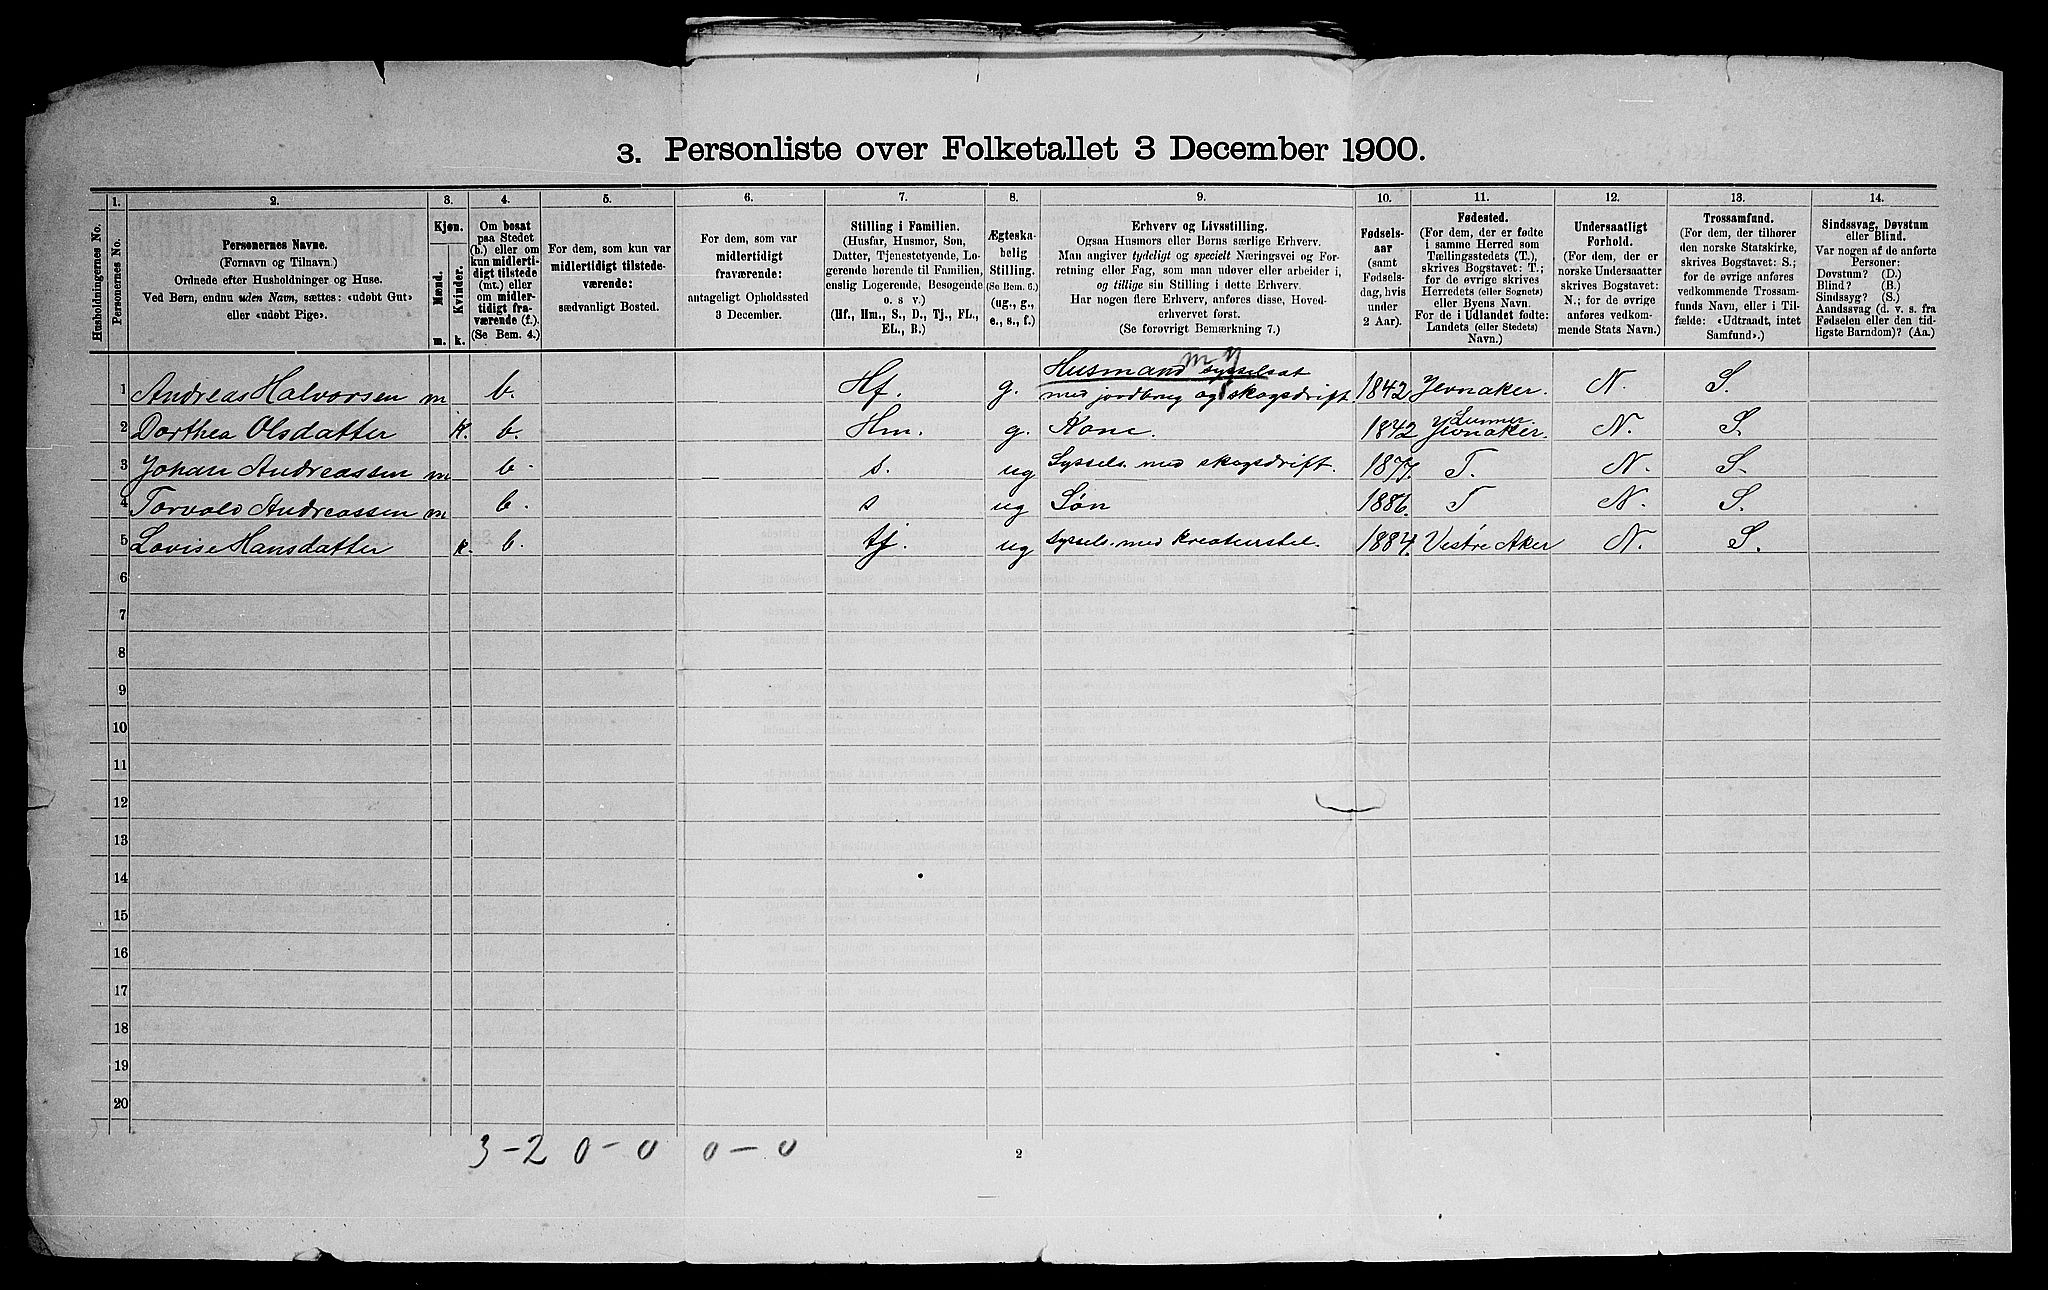 3. Personliste over Folketallet 3 December 1900.
1. 2. 3. 4. 5. 6. 7. 8. 9. 10. 11. 12. 13. 14.
Husholdningernes No.
Personernes No.
Personernes Navne.
(Fornavn og Tilnavn.)
Ordnede efter Husholdninger og Huse.
Ved Børn, endnu uden Navn, sættes: «udøbt Gut»
eller «udøbt Pige».
Kjøn.
Mænd.
Kvinder.
m. k.
Om bosat
paa Stedet
(b.) eller om
kun midlerti-
digt tilstede
(mt.) eller
om midler-
tidigt fra-
værende (f.).
(Se Bem. 4.)
For dem, som kun var
midlertidigt tilstede-
værende:
sædvanligt Bosted.
For dem, som var
midlertidigt
fraværende:
antageligt Opholdssted
3 December.
Stilling i Familien.
(Husfar, Husmor, Søn,
Datter, Tjenestetyende, Lo-
gerende hørende til Familien,
enslig Logerende, Besøgende
o. s v.)
(Hf., Hm., S., D., Tj., FL.,
EL., B.)
Ægteska-
belig
Stilling.
(Se Bem. 6.)
(ug., g.,
e., s., f.)
Erhverv og Livsstilling.
Ogsaa Husmors eller Børns særlige Erhverv.
Man angiver tydeligt og specielt Næringsvei og For-
retning eller Fag, som man udøver eller arbeider i,
og tillige sin Stilling i dette Erhverv.
Har nogen flere Erhverv, anføres disse, Hoved-
erhvervet først.
(Se forøvrigt Bemærkning 7.)
Fødsels-
aar
(samt
Fødsels-
dag, hvis
under
2 Aar).
Fødested.
(For dem, der er fødte
i samme Herred som
Tællingsstedets (T.),
skrives Bogstavet: T.;
for de øvrige skrives
Herredets (eller Sognets)
eller Byens Navn.
For de i Udlandet fødte:
Landets (eller Stedets)
Navn.)
Undersaatligt
Forhold.
(For dem, der er
norske Undersaatter
skrives Bogstavet:
N.; for de øvrige
anføres vedkom-
mende Stats Navn.)
Trossamfund.
(For dem, der tilhører
den norske Statskirke,
skrives Bogstavet: S.;
for de øvrige anføres
vedkommende Trossam-
funds Navn, eller i Til-
fælde: «Udtraadt, intet
Samfund».)
Sindssvag, Døvstum
eller Blind.
Var nogen af de anførte
Personer:
Døvstum? (D.)
Blind? (B.)
Sindssyg? (S.)
Aandssvag (d. v. s. fra
Fødselen eller den tid-
ligste Barndom)? (Aa.)
Husmand sysselsat
1 Andreas Halvorsen m b. Hf. g. med jordbrug og skogsdrift. 1842 Jevnaker. N. S.
Lunner.
2 Dorthea Olsdatter k. b. Hm. g. Kone. 1842 Jevnaker. N. S.
3 Johan Andreassen m b. s. ug Syssels. med skogsdrift. 1877. T. N. S.
4 Torvald Andreassen m b. s ug Søn 1886. T N. S.
5 Lovise Hansdatter k. b. tj. ug syssels. med kreaturstel. 1884. Vestre Aker N. S.
6
7
8
9
10
11
12
13
14
15
16
17
18
19
20
3-2 0-0 0-0
2